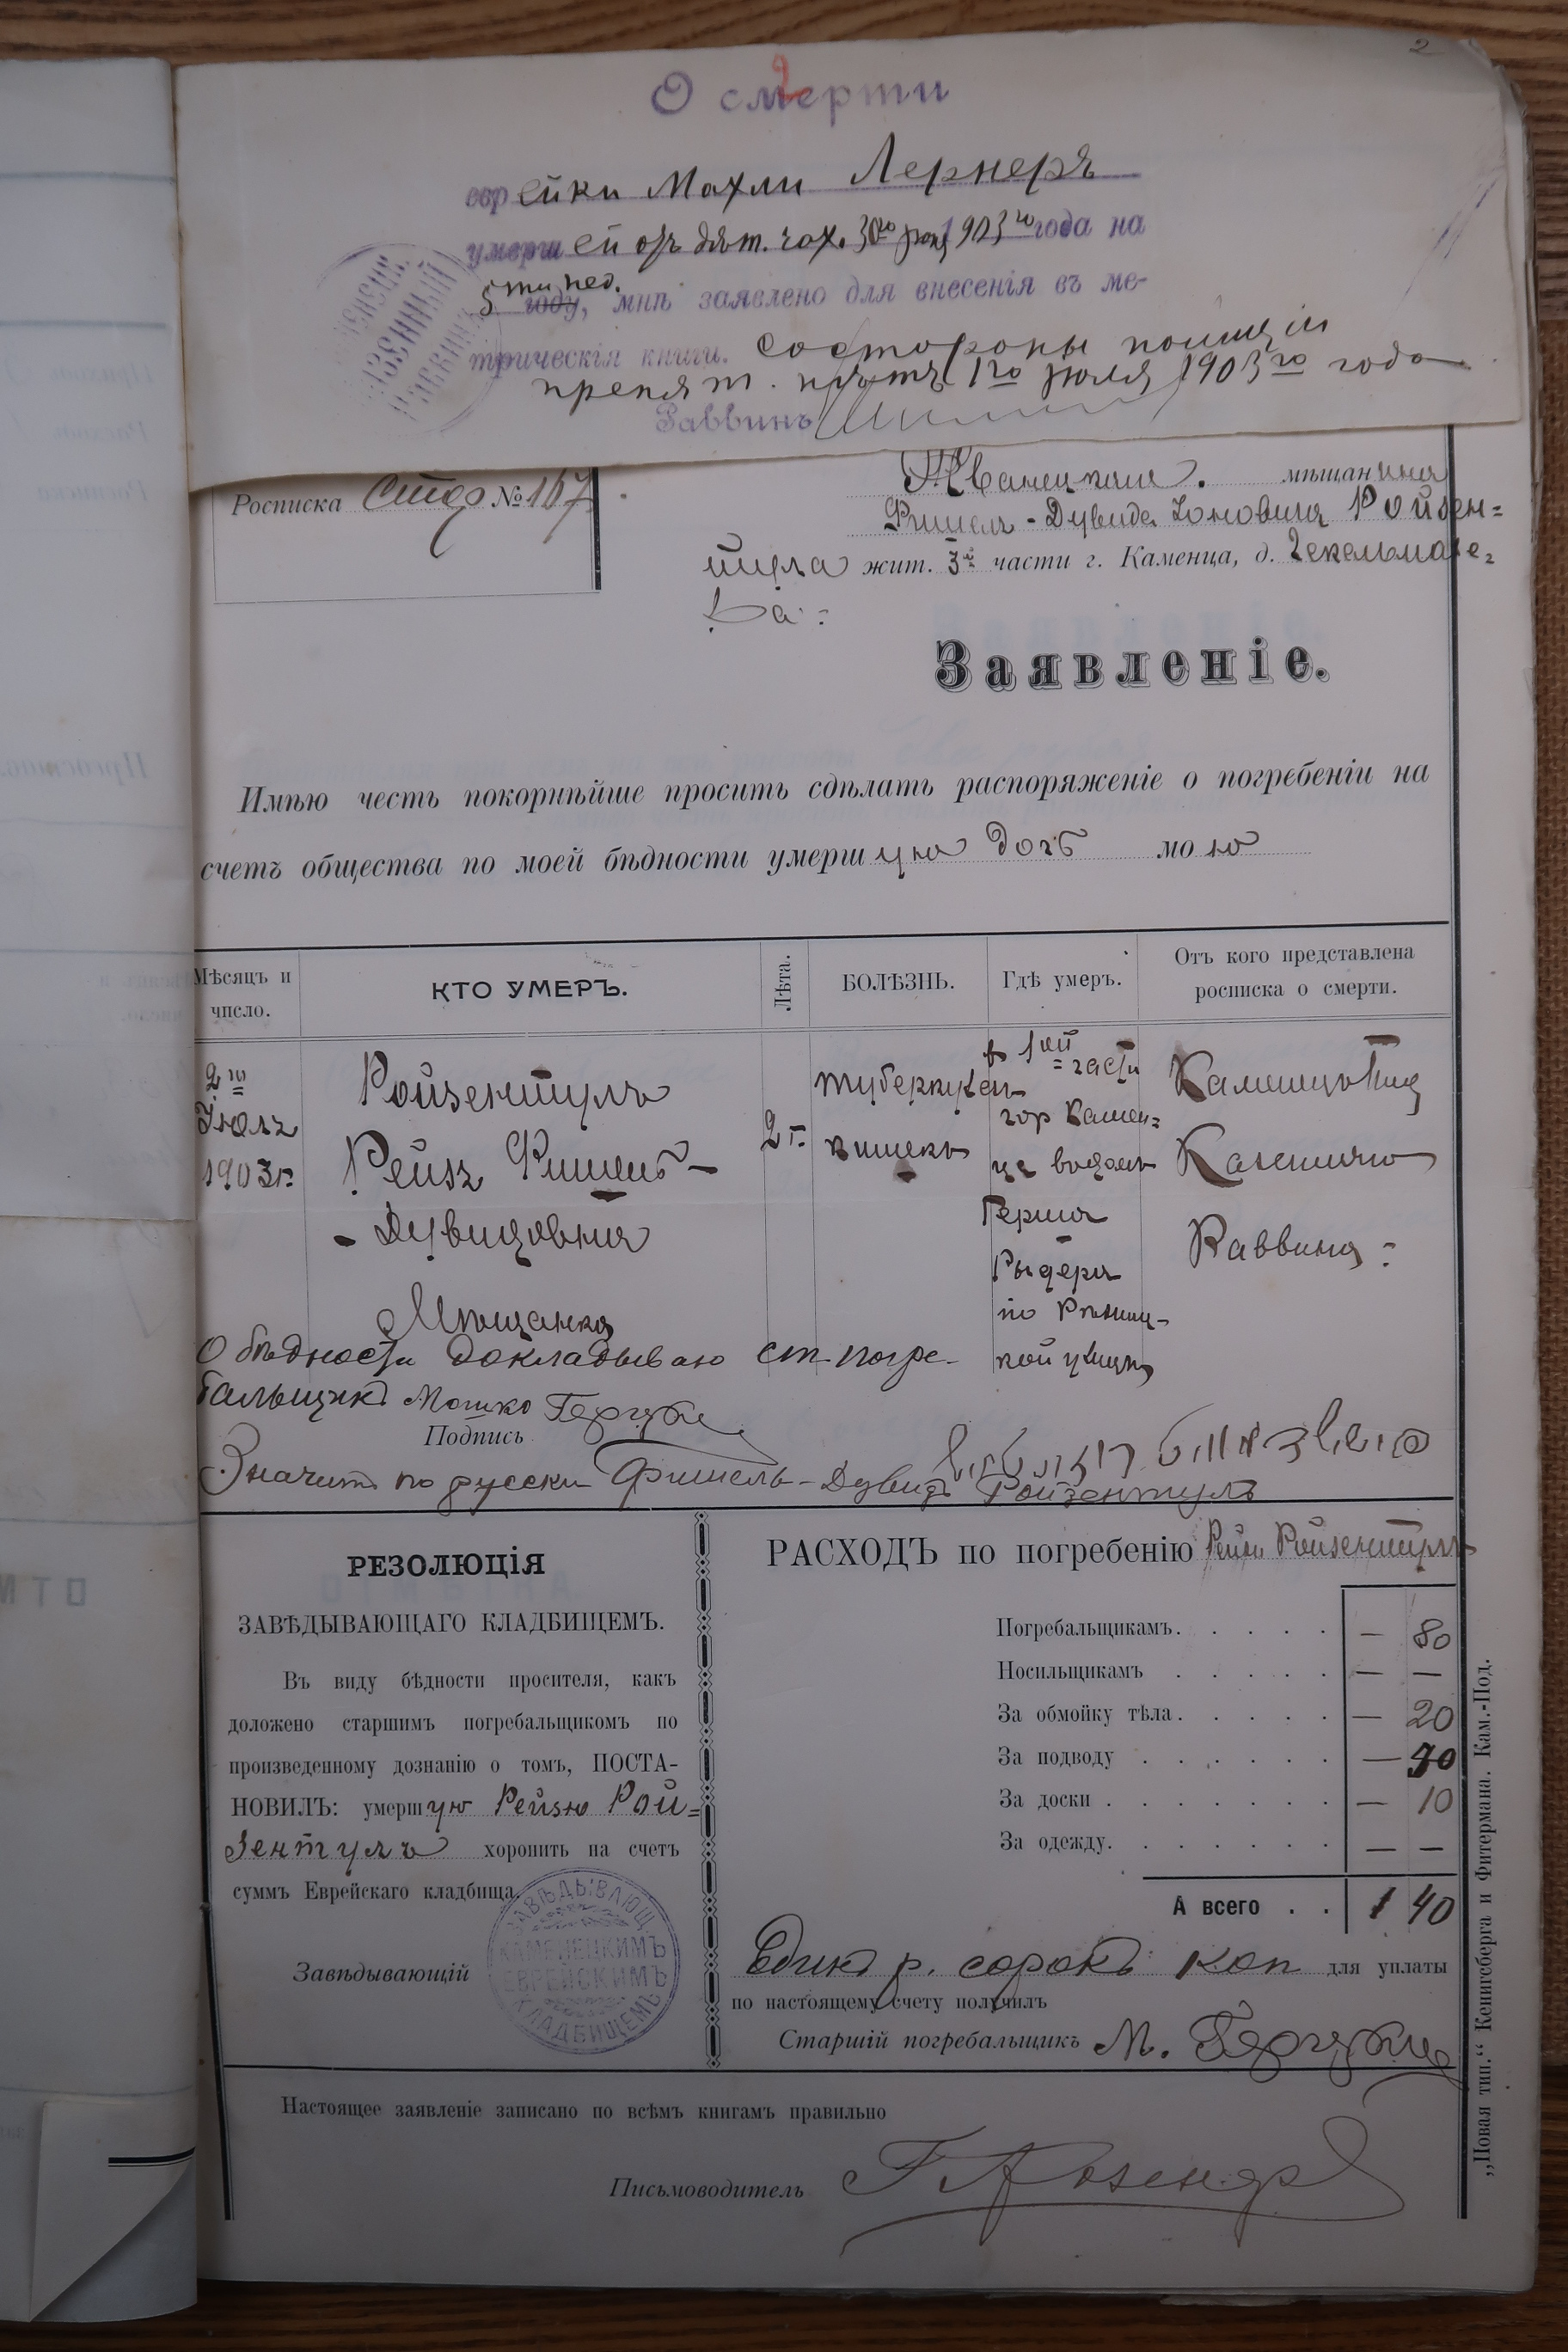 2
О смерти
2
еврейки Махли Лернеръ
умершей отъ дѣт. 30го 1903го года на
5ти нед. году, мнѣ заявлено для внесенія въ ме-
трическія книги. состороны полиціи
препят. нѣтъ 1го юля 1903го года
Раввинъ
Росписка № 167
Жванецкаго мѣщанина
Фишель-Дувида Іоновича Ройзен=
тула жит. 3й части г. Каменца, д. Гекельмахе=
ра
Заявленіе.
Имѣю честь покорнѣйше просить сдѣлать распоряженіе о погребеніи на
счетъ общества по моей бѣдности умершую дочь мою
Мѣсяцъ и число.
КТО УМЕРЪ.
Лѣта.
БОЛѢЗНЬ.
Гдѣ умеръ.
Отъ кого представлена росписка о смерти.
2го
Июля
1903г.
Ройзентулъ
Рейзя Фишель-
-Дувидовна
Мѣщанка
2г.
туберкулезъ
кишекъ
в 1ой части
гор Камен=
ца
Герша
Рыдера
по
кой улицѣ
Каменецъ Под
Казеннаго
Раввина
О бѣдности докладываю ст. погре-
бальщикъ Мошко
Подпись
Значитъ по русски Фишель-Дувидъ Ройзентулъ
РЕЗОЛЮЦІЯ
ЗАВѢДЫВАЮЩАГО КЛАДБИЩЕМЪ.
Въ виду бѣдности просителя, какъ
доложено старшимъ погребальщикомъ по
произведенному дознанію о томъ, ПОСТА-
НОВИЛЪ: умершую Рейзю Рой=
зентулъ хоронить на счетъ
суммъ Еврейскаго кладбища.
Завѣдывающій
ЗАВѢДЫВАЮЩ.
КАМЕНЕЦКИМЪ
ЕВРЕЙСКИМЪ
КЛАДБИЩЕМЪ
РАСХОДЪ по погребенію Рейзи Ройзентулъ
Погребальщикамъ. — 80
Носильщикамъ — —
За обмойку тѣла. — 20
За подводу — 30
За доски — 10
За одежду. — —
А всего 1 40
Единъ р. сорокъ коп для уплаты
по настоящему счету получилъ
Старшій погребальщикъ М.
Настоящее заявленіе записано по всѣмъ книгамъ правильно
Письмоводитель
„Новая тип.“ Кенигсберга и Фитермана. Кам.-Под.